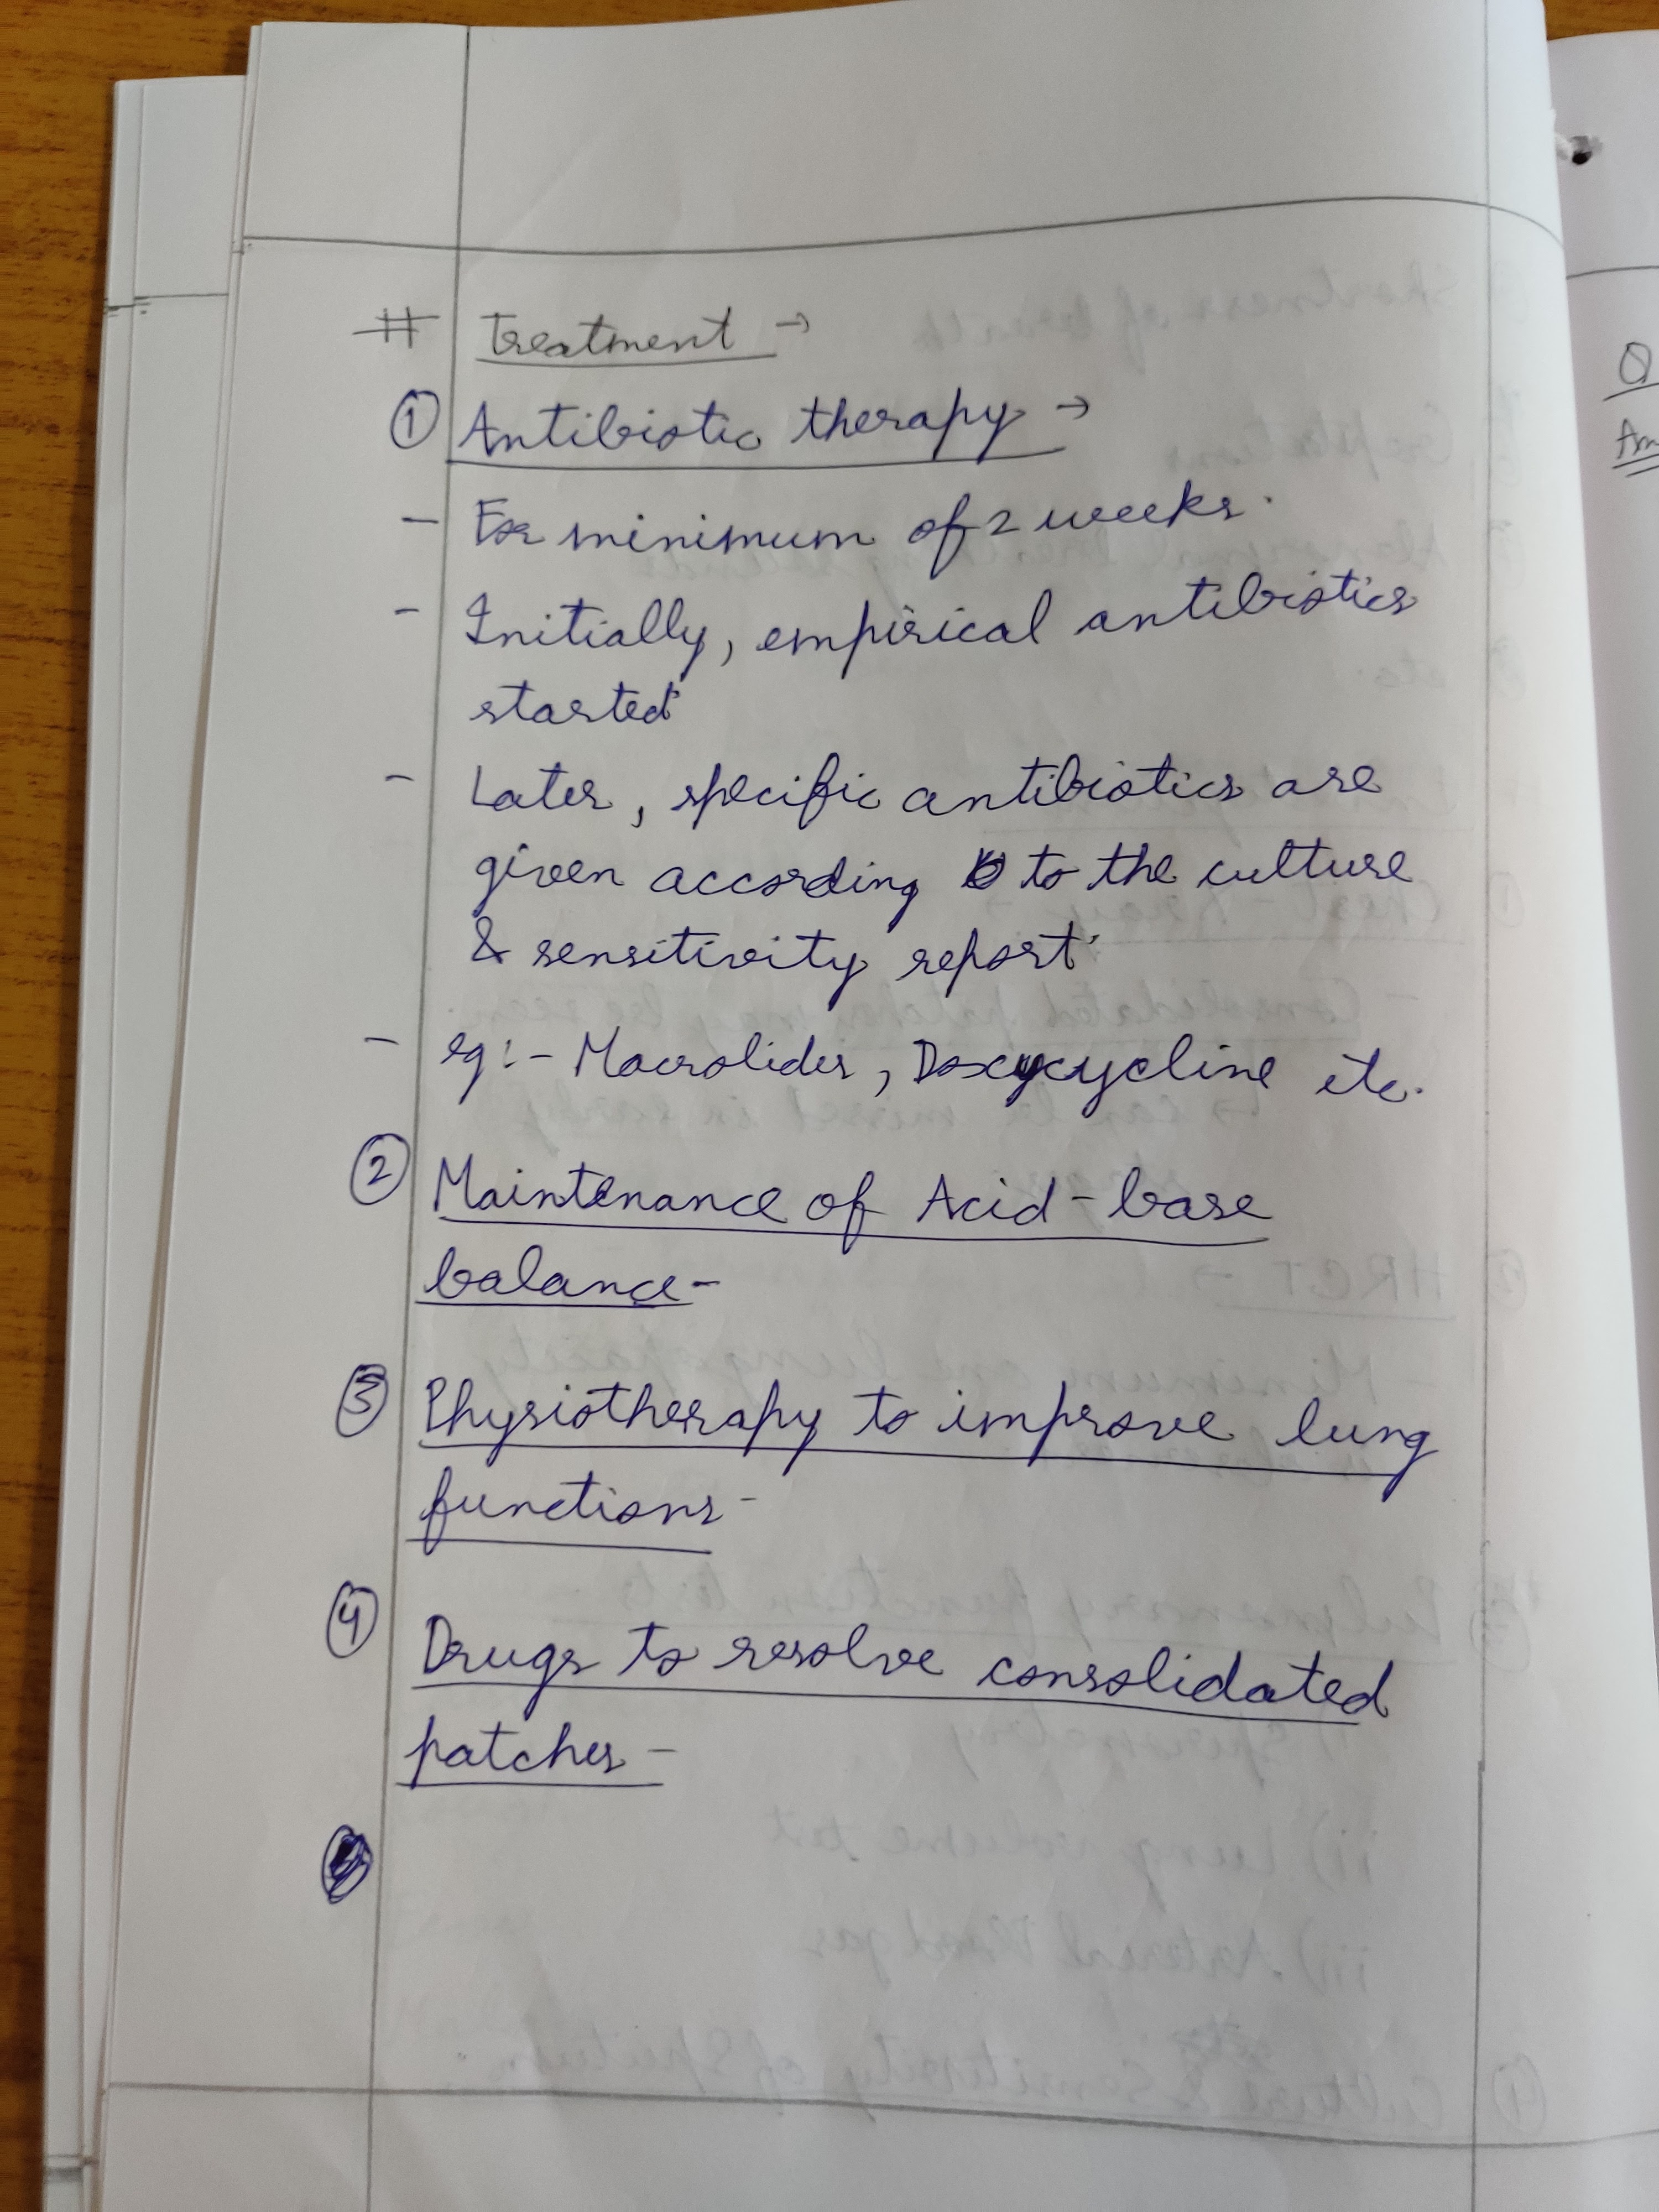 # Treatment →
① Antibiotic therapy →
- For minimum of 2 weeks.
- Initially, empirical antibiotics
started
- Later, specific antibiotics are
given according to the culture
& sensitivity report.
- eg:- Macrolides, Doxycycline etc.
② Maintenance of Acid-base
balance-
③ Physiotherapy to improve lung
functions-
④ Drugs to resolve consolidated
patches-
Q
An